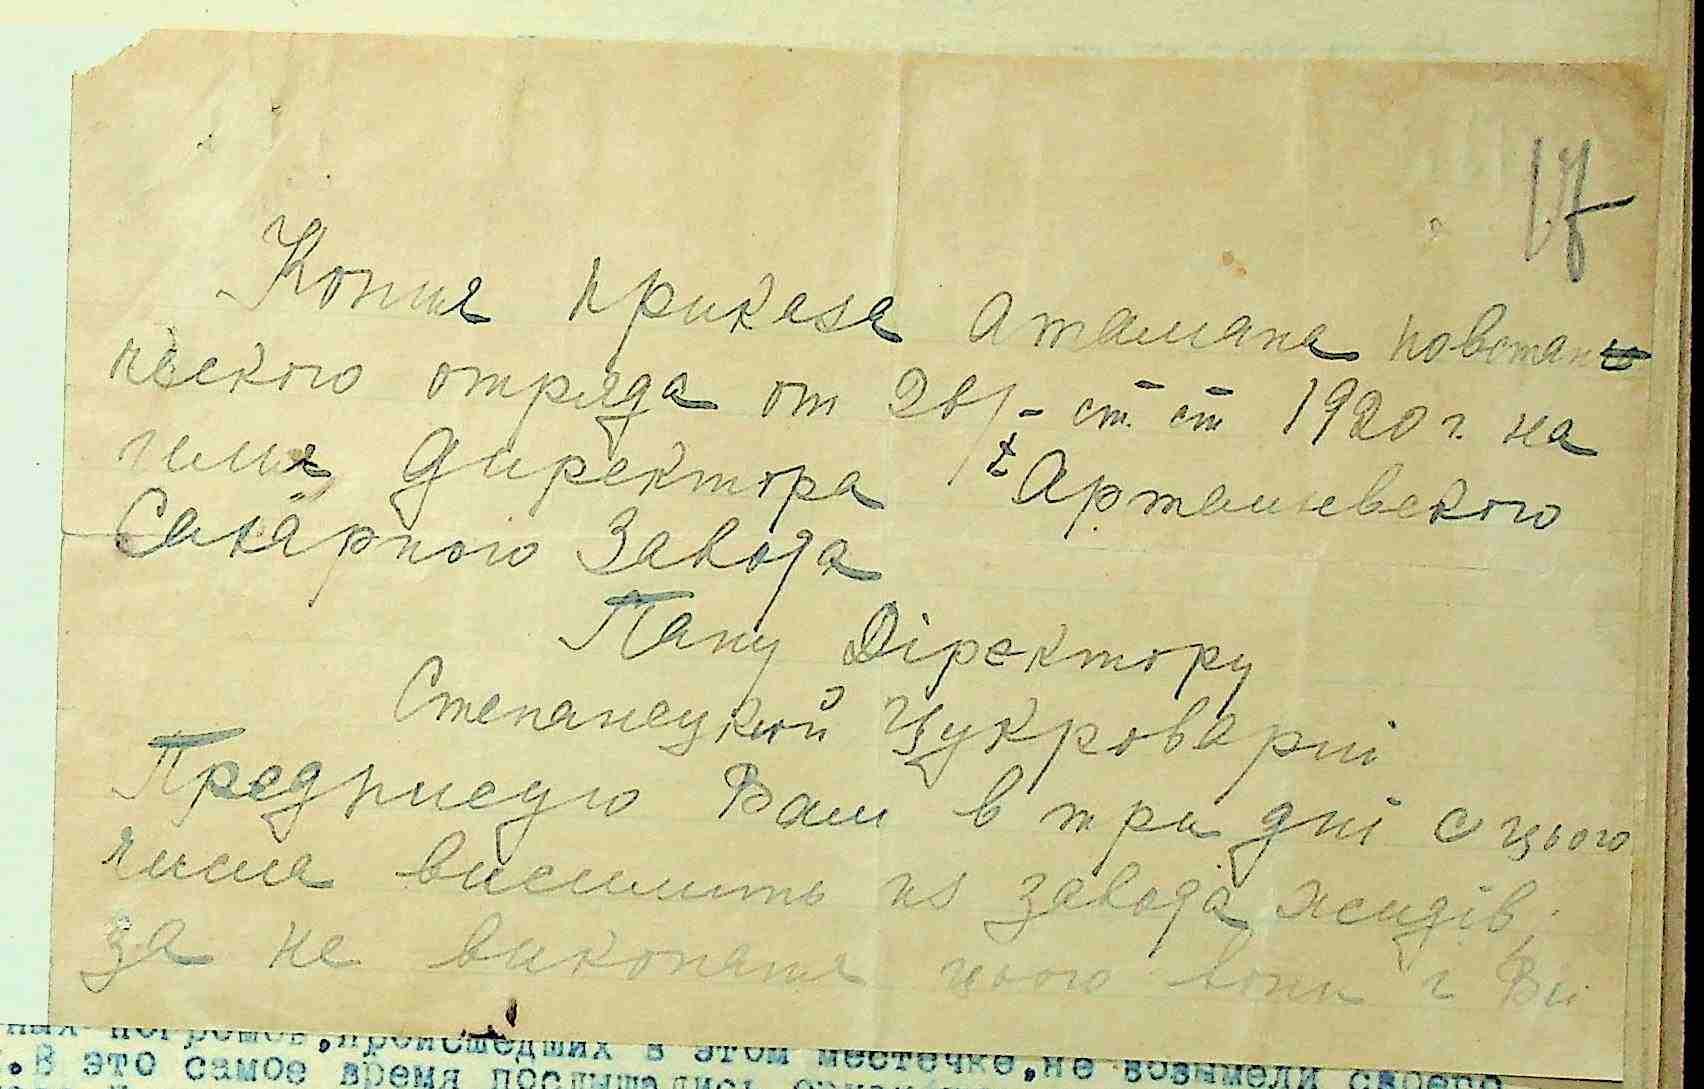 17
Копия приказа Атамана повстан
ческого отряда от 26/- ст. ст 1920 г. на
имя Директора Арташевского
Сахарного Завода
Пану Діректору
Степанецкой Цукроварні
Предписую Вам в три дні с цього
числа виселить из завода жидів,
за не виконатя цього вони і Ви
ных погромов, происшедших в этом местечке, не возымели своего
. В это самое время послышались